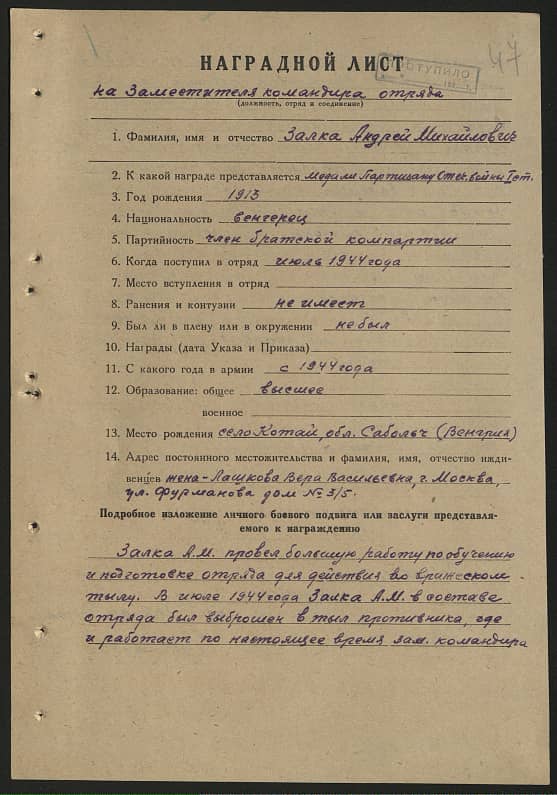 47
НАГРАДНОЙ ЛИСТ
ПОСТУПИЛО
на Заместителя командира отряда
(должность, отряд и соединение)
1. Фамилия, имя и отчество Залка Андрей Михайлович
2. К какой награде представляется медали Партизану Отеч. войны I ст.
3. Год рождения 1913
4. Национальность венгерец
5. Партийность член братской компартии
6. Когда поступил в отряд июль 1944 года
7. Место вступления в отряд
8. Ранения и контузии не имеет
9. Был ли в плену или в окружении не был
10. Награды (дата Указа и Приказа)
11. С какого года в армии с 1944 года
12. Образование: общее высшее
военное
13. Место рождения село Котай, обл. Сабольч (Венгрия)
14. Адрес постоянного местожительства и фамилия, имя, отчество ижди-
венцев жена-Лашкова Вера Васильевна, г. Москва,
ул. Фурманова дом № 3/5.
Подробное изложение личного боевого подвига или заслуги представля-
емого к награждению
Залка А.М. провел большую работу по обучению
и подготовке отряда для действия во вражеском
тылу. В июле 1944 года Залка А.М. в составе
отряда был выброшен в тыл противника, где
и работает по настоящее время зам. командира